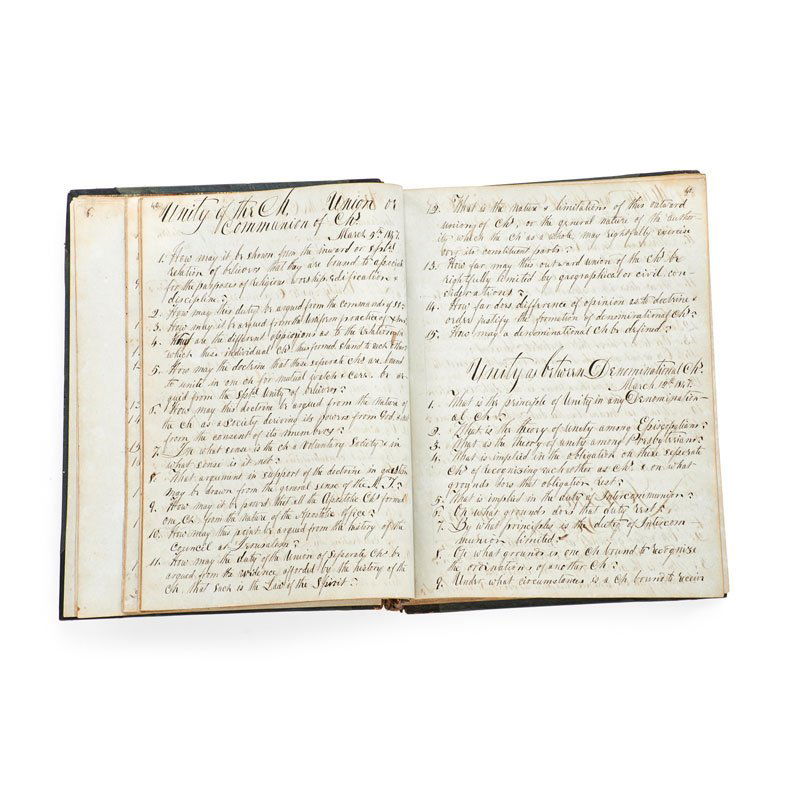 Unity of the Ch. Union or
Communion of Chs
March 9th 1847.
1. How may it be shown from the inward or spl
relation of believers that they are bound to associate
for the purposes of religious worship edification &
discipline?
2. How may this duty be argued from the commands of
3. How may it be argued from the uniform practice of
4. What are the different opinions as to the relation in
which these individual Chs thus formed stand to each other?
5. How may the doctrine that these separate Chs are bound
to unite in one ch for mutual watch & care be ar-
gued from the Spl Unity of believers?
6. How may this doctrine be argued from the nature of
the Ch as a Society deriving its powers from God, & not
from the consent of its members?
7. In what sense is the ch a voluntary Society & in
what sense is it not?
8. What argument in support of the doctrine in question
may be drawn from the general sense of the N. T.?
9. How may it be proved that all the Apostolic Chs formed
one Ch from the nature of the Apostolic office?
10. How may this point be argued from the history of the
Council at Jerusalem?
11. How may the duty of the Union of Separate Chs be
argued from the evidence afforded by the history of the
Ch. that such is the Law of the Spirit?
12. What is the nature & limitations of this outward
union of Chs, or the general nature of the author-
ity which the Ch as a whole may rightfully exercise
over its constituent parts?
13. How far may this outward union of the Ch be
rightfully limited by geographical or civil con-
siderations?
14. How far does difference of opinion as to doctrine &
order justify the formation of denominational Chs?
15. How may a denominational Ch be defined?
Unity as between Denominational Chs.
March 10th 1847.
1. What is the principle of Unity in any Denomination-
al Ch?
2. What is the theory of unity among Episcopalians?
3. What is the theory of unity among Presbyterians?
4. What is implied in the obligation on these separate
Chs of recognizing each other as Chs & on what
grounds does that obligation rest?
5. What is implied in the duty of Intercommunion?
6. On what grounds does that duty rest?
7. By what principles is the duty of Intercom-
munion limited?
8. On what grounds is one Ch bound to recognize
the ordinations of another Ch?
9. Under what circumstances is a Ch bound to receive